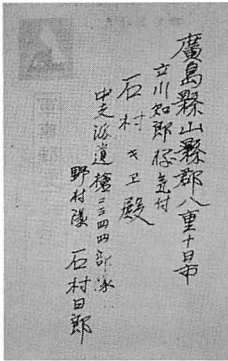 廣島縣山縣郡八重十日市
立川知郎様気付
石村キヱ殿
中支派遣槍二三四四部隊
野村隊 石村田郎